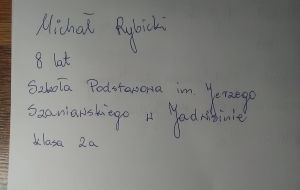 Michał Rybicki
8 lat
Szkoła Podstawowa im. Jerzego
Szaniawskiego w Jadwisinie
klasa 2a